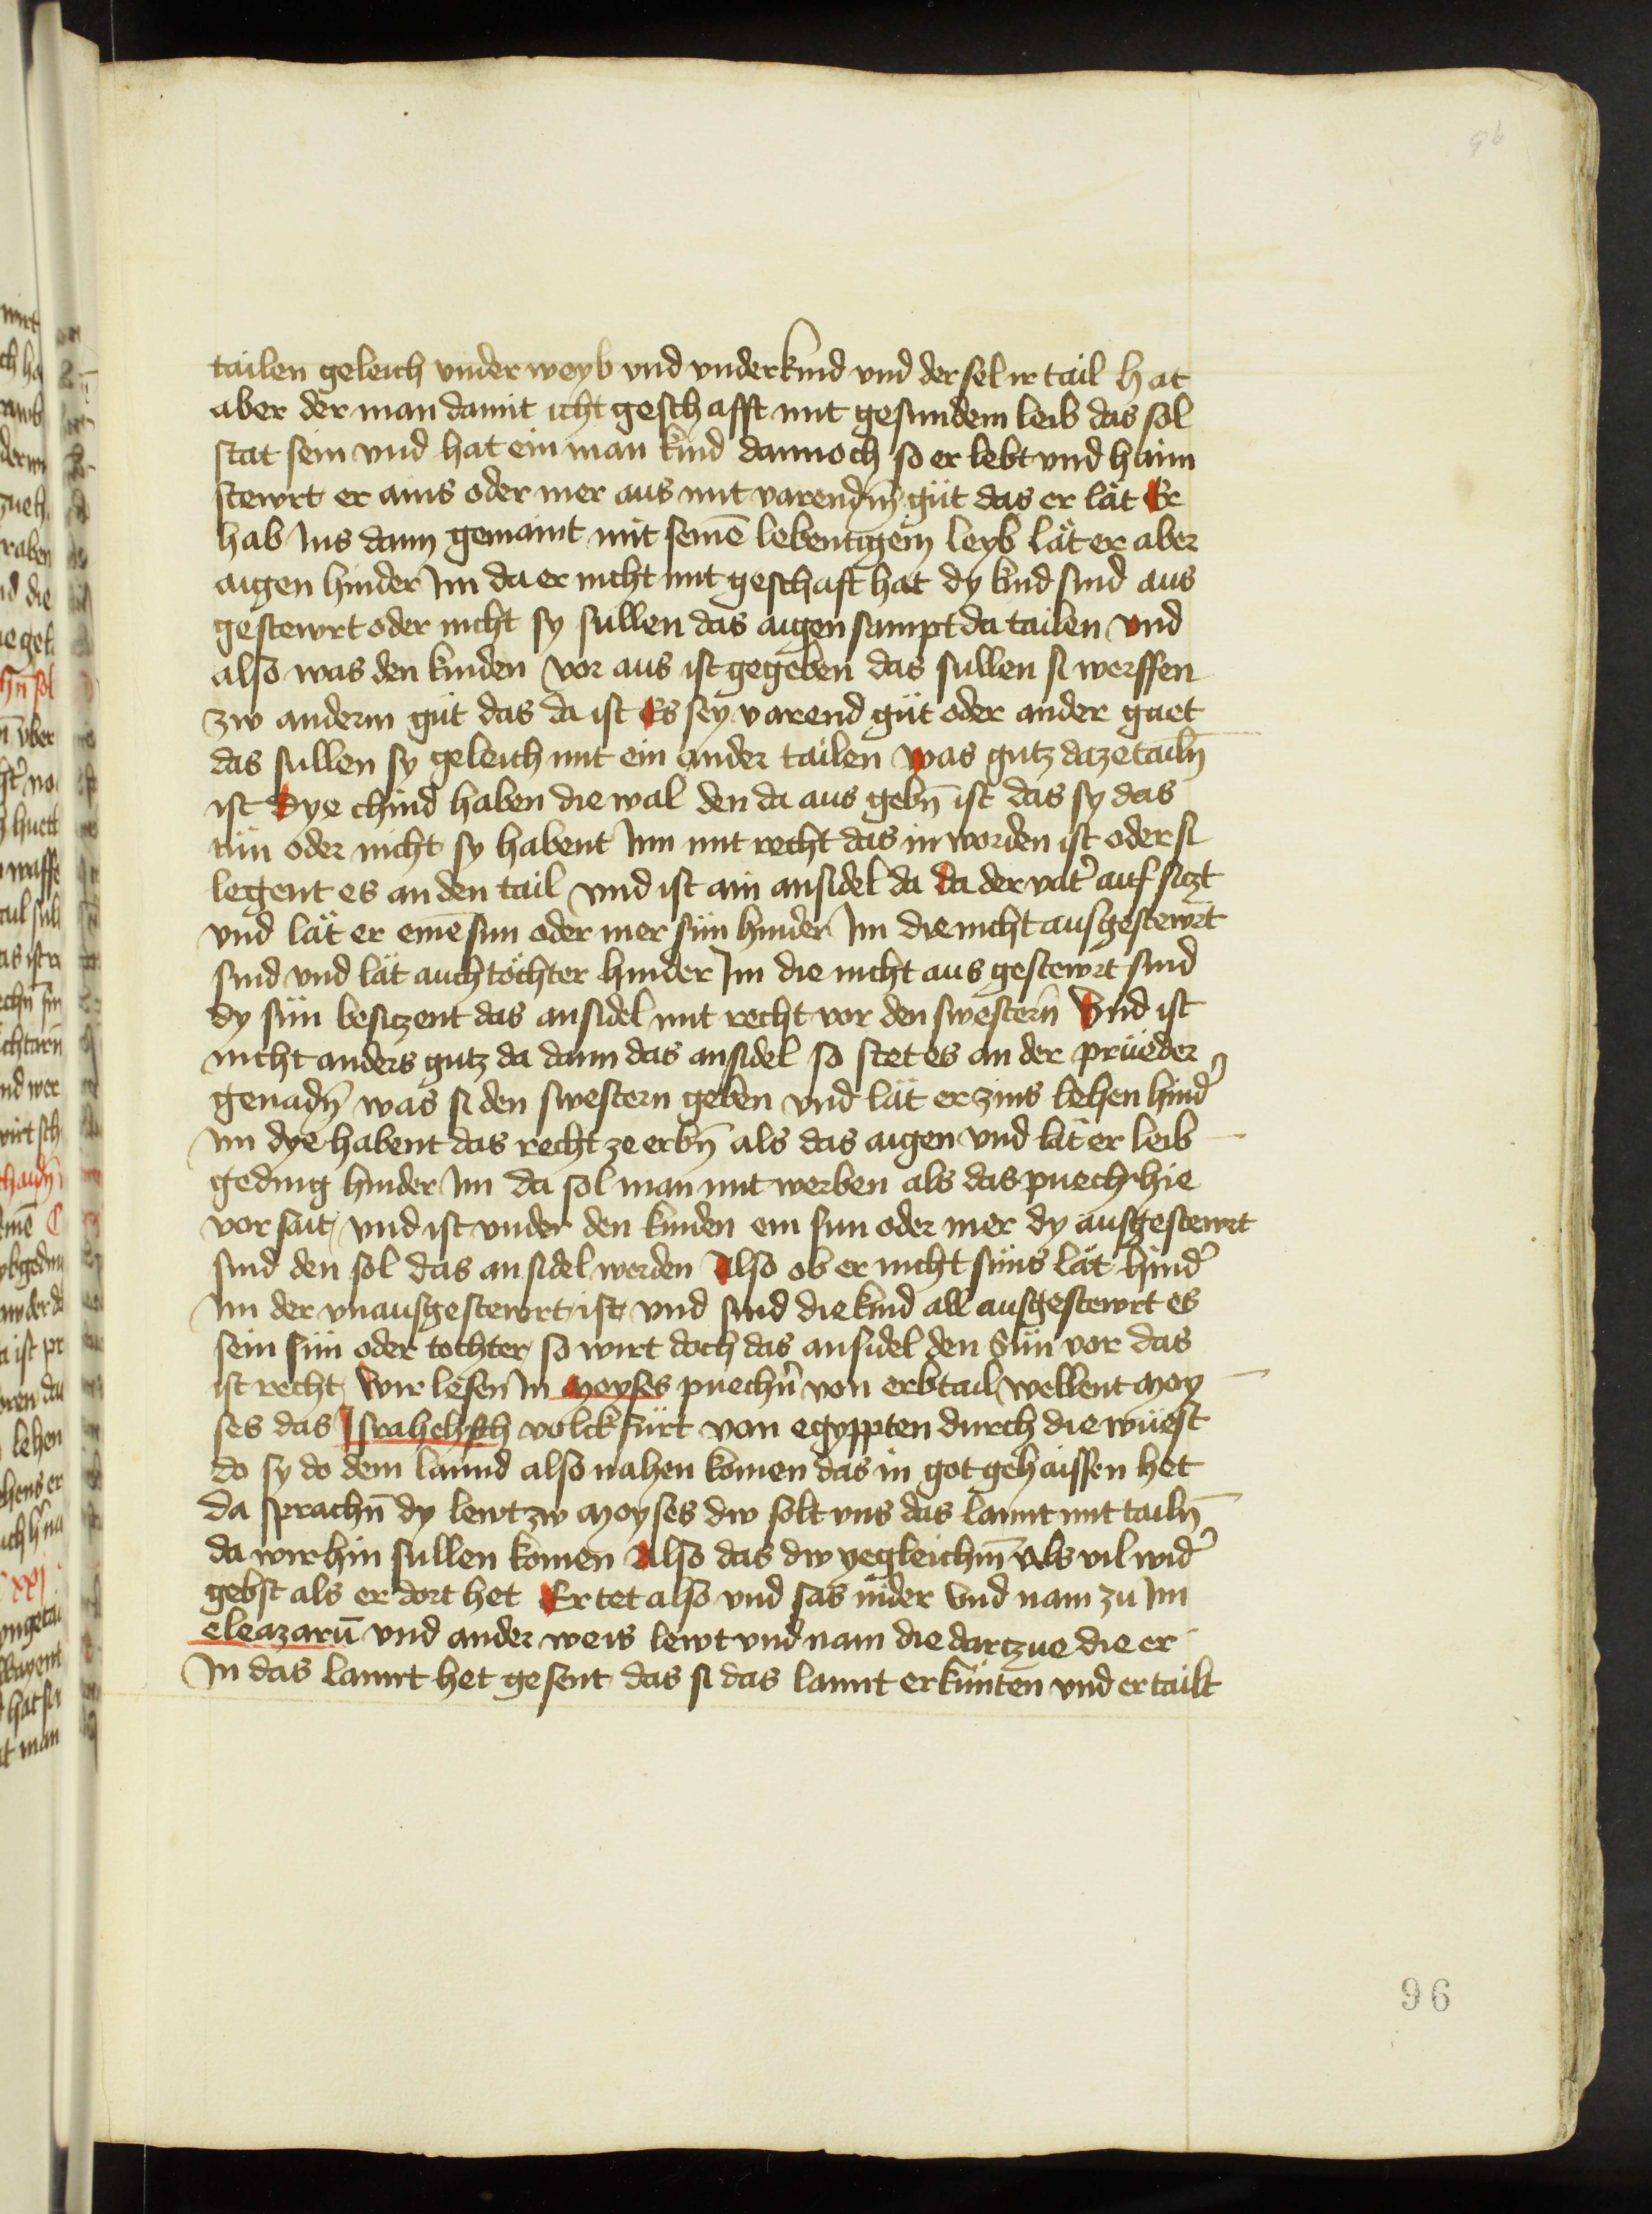 96
tailen geleich vnder weyb vnd vnder kind vnd der sel ir tail hat
aber der man damit icht geschafft mit gesundem leib das sol
stät sein vnd hat ein man kind dannoch so er lebt vnd haim
stewrt er ains oder mer aus mit varendm̄ güt das er lät Er
hab Ins dann gemaint mit seinē lebentigem leyb lät er aber
aigen hinder Im da er nicht mit geschaft hat dy kind sind aus
gestewrt oder nicht sy süllen das aigen sampt da tailen vnd
also was den kinden vor aus ist gegeben das sullen si werffen
zw anderm güt das da ist Es sey varend güt oder ander guet
das sullen sy geleich mit ein ander tailen was gutz da ze tailn̄
ist Dye chind haben die wal den da aus gebn̄ ist das sy das
tün oder nicht sy habent Inn mit recht das in worden ist oder si
legent es an den tail vnd ist ain ansidel da da der vat͛ auf siczt
vnd lät er einē sun oder mer sün hinder Im die nicht ausgestewrt
sind vnd lät auch töchter hinder Im die nicht aus gestewrt sind
dy sün besiczent das ansidel mit recht vor den swestern̄ Vnd ist
nicht anders gutz da dann das ansidel so stet es an der prüeder
genadn̄ was si den swestern geben vnd lät er zins lehen hind͛
im dye habent das recht ze erbn̄ als das aigen vnd lät er leib
geding hinder Im da sol man mit werben als das puech hie
vor sait vnd ist vnder den kinden ein sun oder mer dy ausgestewrt
sind den sol das ansidel werden Also ob er nicht süns lät hind͛
im der vnausgestewrt ist vnd sind die kind all ausgestewrt es
sein sün oder tochter so wirt doch das ansidel den Sün vor das
ist recht Wir lesen In Moyses puechn̄ von erbtail wellent Moy
ses das Israhelisch volck fürt von egyppten durch die wüest
do sy do dem lannd also nahen komen das in got gehaissen het
da sprachn̄ dy lewt zw Moyses dw solt vns das lannt mit tailn̄
da wir hin sullen komen Also das dw yegleichm̄ als vil wid͛
gebst als er dort het Er tet also vnd sas nider vnd nam zu Im
eleazarū vnd ander weis lewt vnd nam die dartzue die er
In das lannt het gesent das si das lannt erkünten vnd ertailt
96